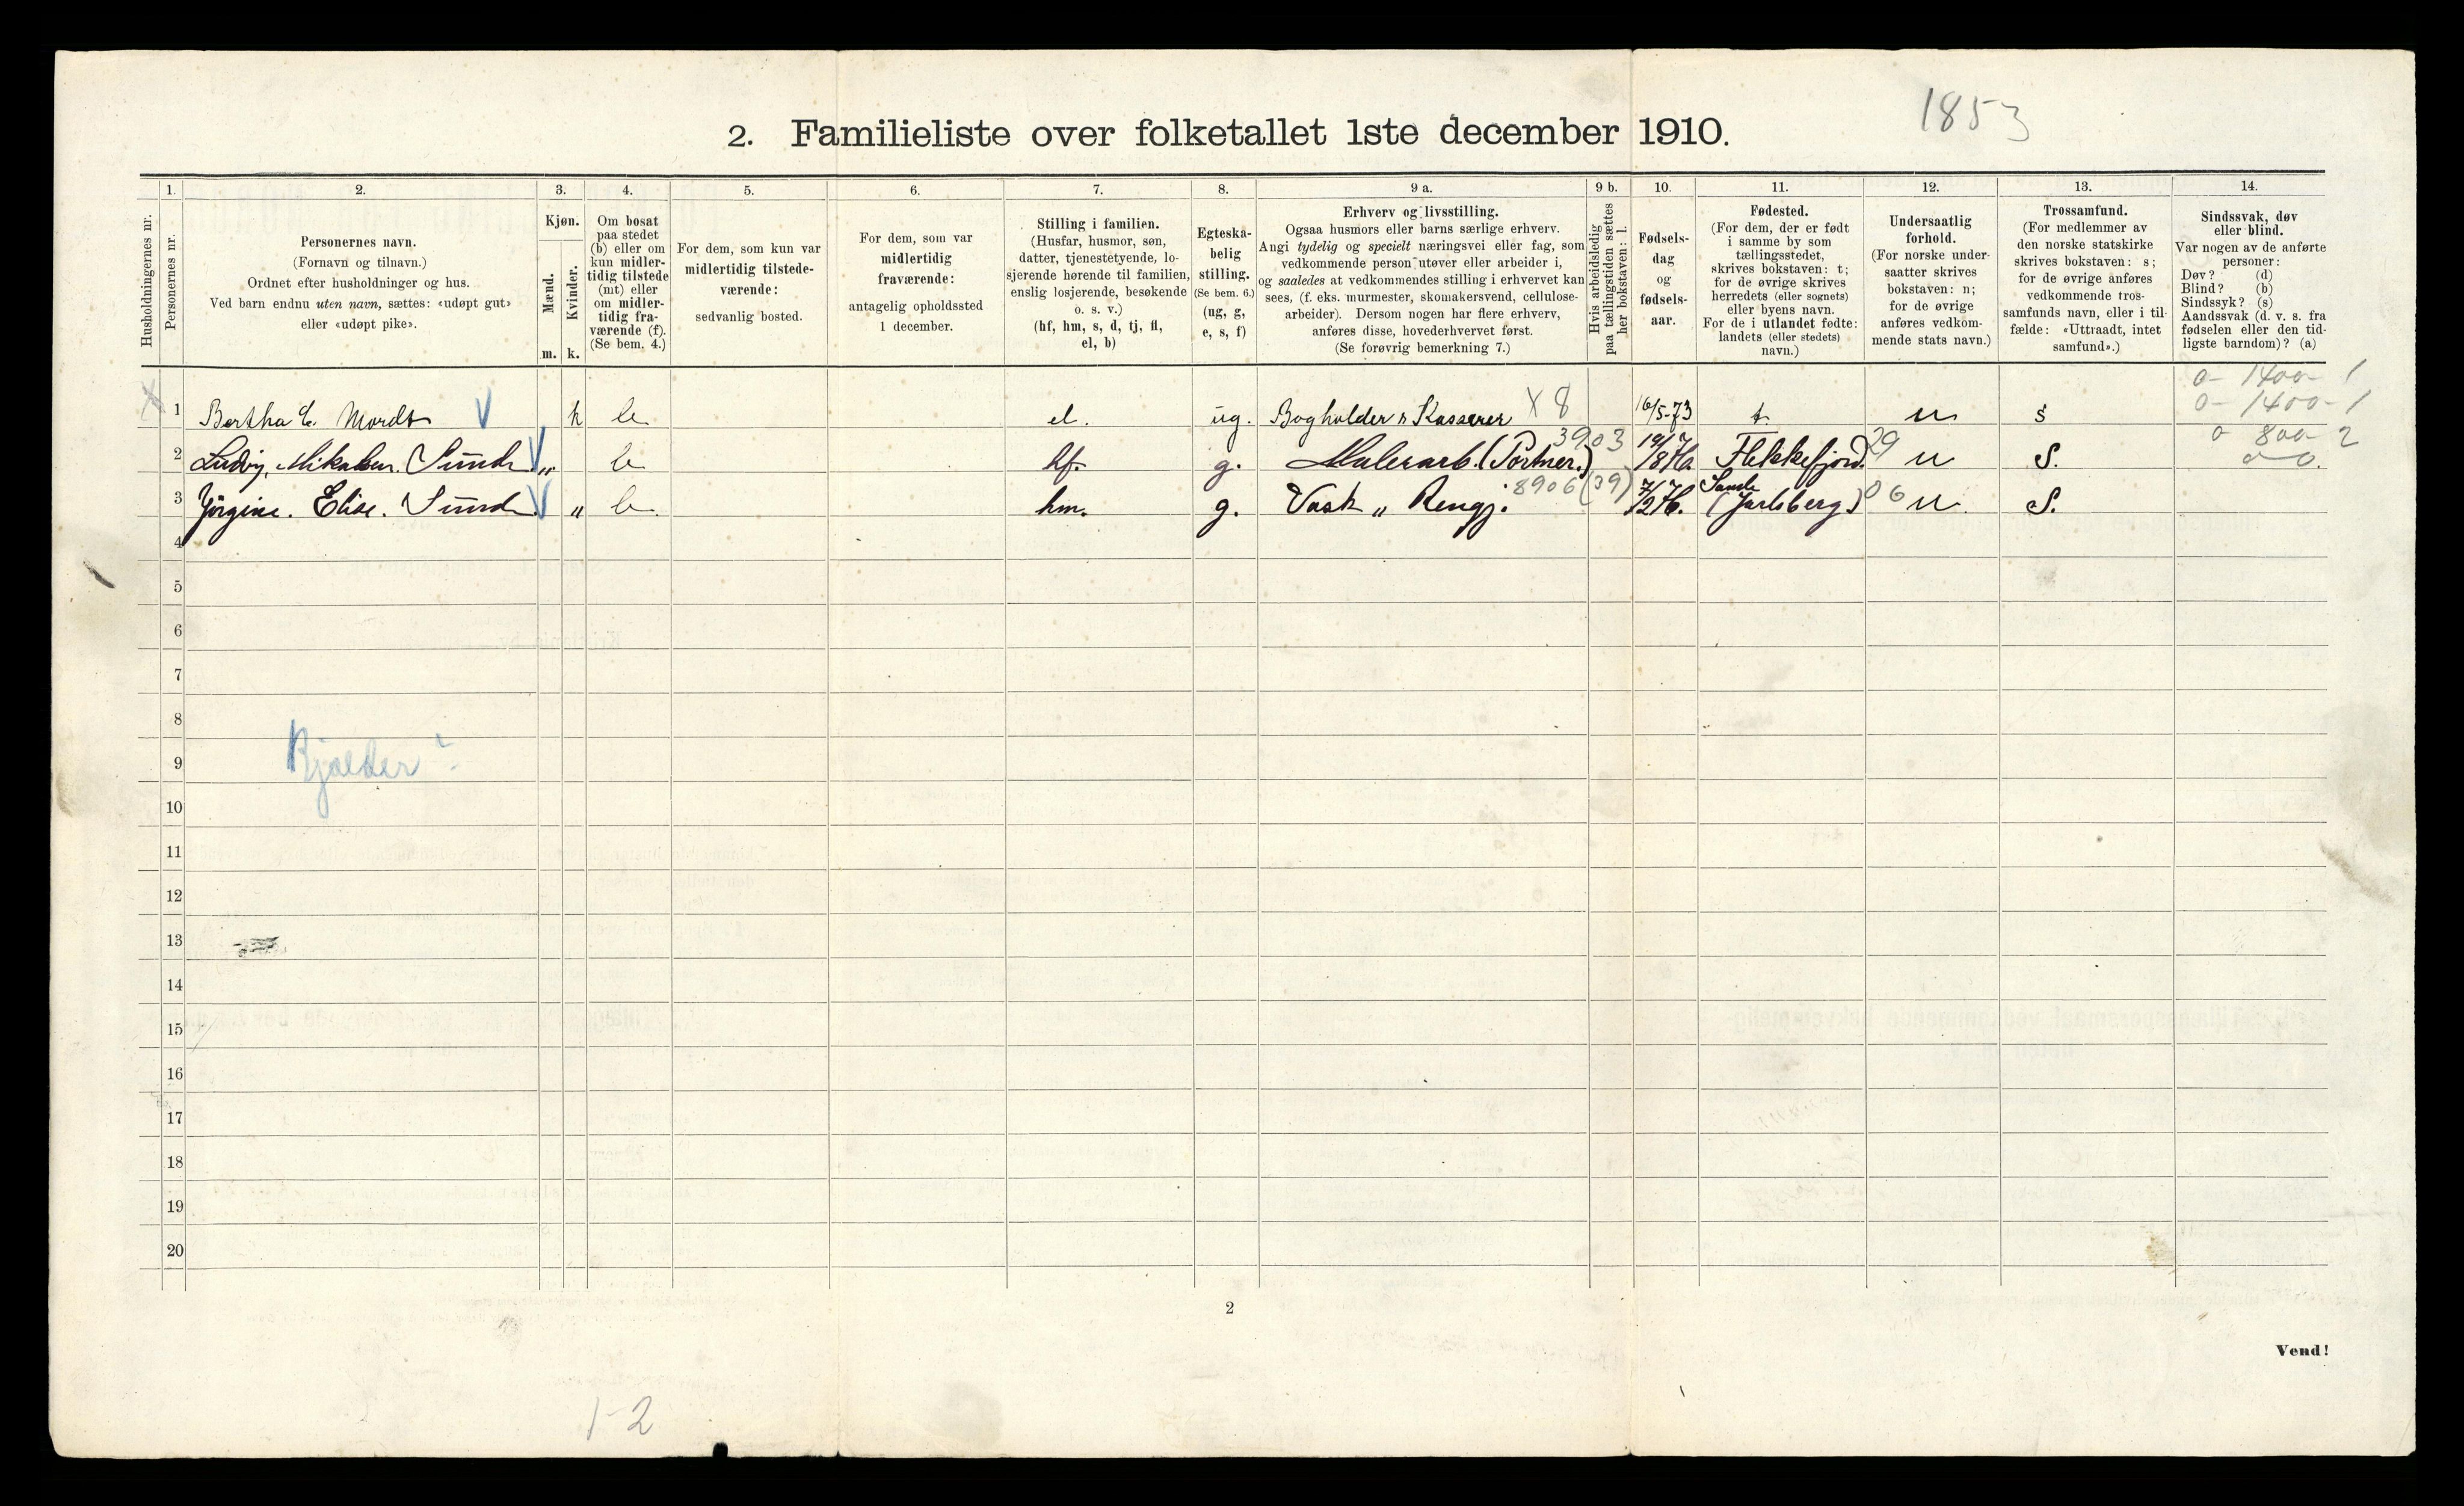 1853
2. Familieliste over folketallet 1ste december 1910.
1. 2. 3. 4. 5. 6. 7. 8. 9 a. 9 b. 10. 11. 12. 13. 14.
Husholdningernes nr.
Personernes nr.
Personernes navn.
(Fornavn og tilnavn.)
Ordnet efter husholdninger og hus.
Ved barn endnu uten navn, sættes: «udøpt gut»
eller «udøpt pike».
Kjøn.
Mænd.
Kvinder.
m. k.
Om bosat
paa stedet
(b) eller om
kun midler-
tidig tilstede
(mt) eller
om midler-
tidig fra-
værende (f).
(Se bem. 4.)
For dem, som kun var
midlertidig tilstede-
værende:
sedvanlig bosted.
For dem, som var
midlertidig
fraværende:
antagelig opholdssted
1 december.
Stilling i familien.
(Husfar, husmor, søn,
datter, tjenestetyende, lo-
sjerende hørende til familien,
enslig losjerende, besøkende
o. s. v.)
(hf, hm, s, d, tj, fl,
el, b)
Egteska-
belig
stilling.
(Se bem. 6.)
(ug, g,
e, s, f)
Erhverv og livsstilling.
Ogsaa husmors eller barns særlige erhverv.
Angi tydelig og specielt næringsvei eller fag, som
vedkommende person utøver eller arbeider i,
og saaledes at vedkommendes stilling i erhvervet kan
sees, (f. eks. murmester, skomakersvend, cellulose-
arbeider). Dersom nogen har flere erhverv,
anføres disse, hovederhvervet først.
(Se forøvrig bemerkning 7.)
Hvis arbeidsledig
paa tællingstiden sættes
her bokstaven: l.
Fødsels-
dag
og
fødsels-
aar.
Fødested.
(For dem, der er født
i samme by som
tællingsstedet,
skrives bokstaven: t;
for de øvrige skrives
herredets (eller sognets)
eller byens navn.
For de i utlandet fødte:
landets (eller stedets)
navn.)
Undersaatlig
forhold.
(For norske under-
saatter skrives
bokstaven: n;
for de øvrige
anføres vedkom-
mende stats navn.)
Trossamfund.
(For medlemmer av
den norske statskirke
skrives bokstaven: s;
for de øvrige anføres
vedkommende tros-
samfunds navn, eller i til-
fælde: «Uttraadt, intet
samfund».)
Sindssvak, døv
eller blind.
Var nogen av de anførte
personer:
Døv? (d)
Blind? (b)
Sindssyk? (s)
Aandssvak (d. v. s. fra
fødselen eller den tid-
ligste barndom)? (a)
0- 1400- 1
1 Bertha C. Mordt V k b el. ug. Bogholder & Kasserer X 8 16/5-73 t n s 0- 1400- 1
2 Ludvig Mikalsen Sund V " b hf. g. Malerarb. (Portner.) 3903 Flekkefjord. 29 n S. 0 800 2
0 0.
3 Jörgine. Elise. Sund V " b. hm. g. Vask " Rengj. 8906 (39) Sande (Jarlsberg) 06 n. S.
4
5
6
7
8
Kjælder
9
10
11
12
13
14
15
16
17
18
19
20
2
Vend!
1-2